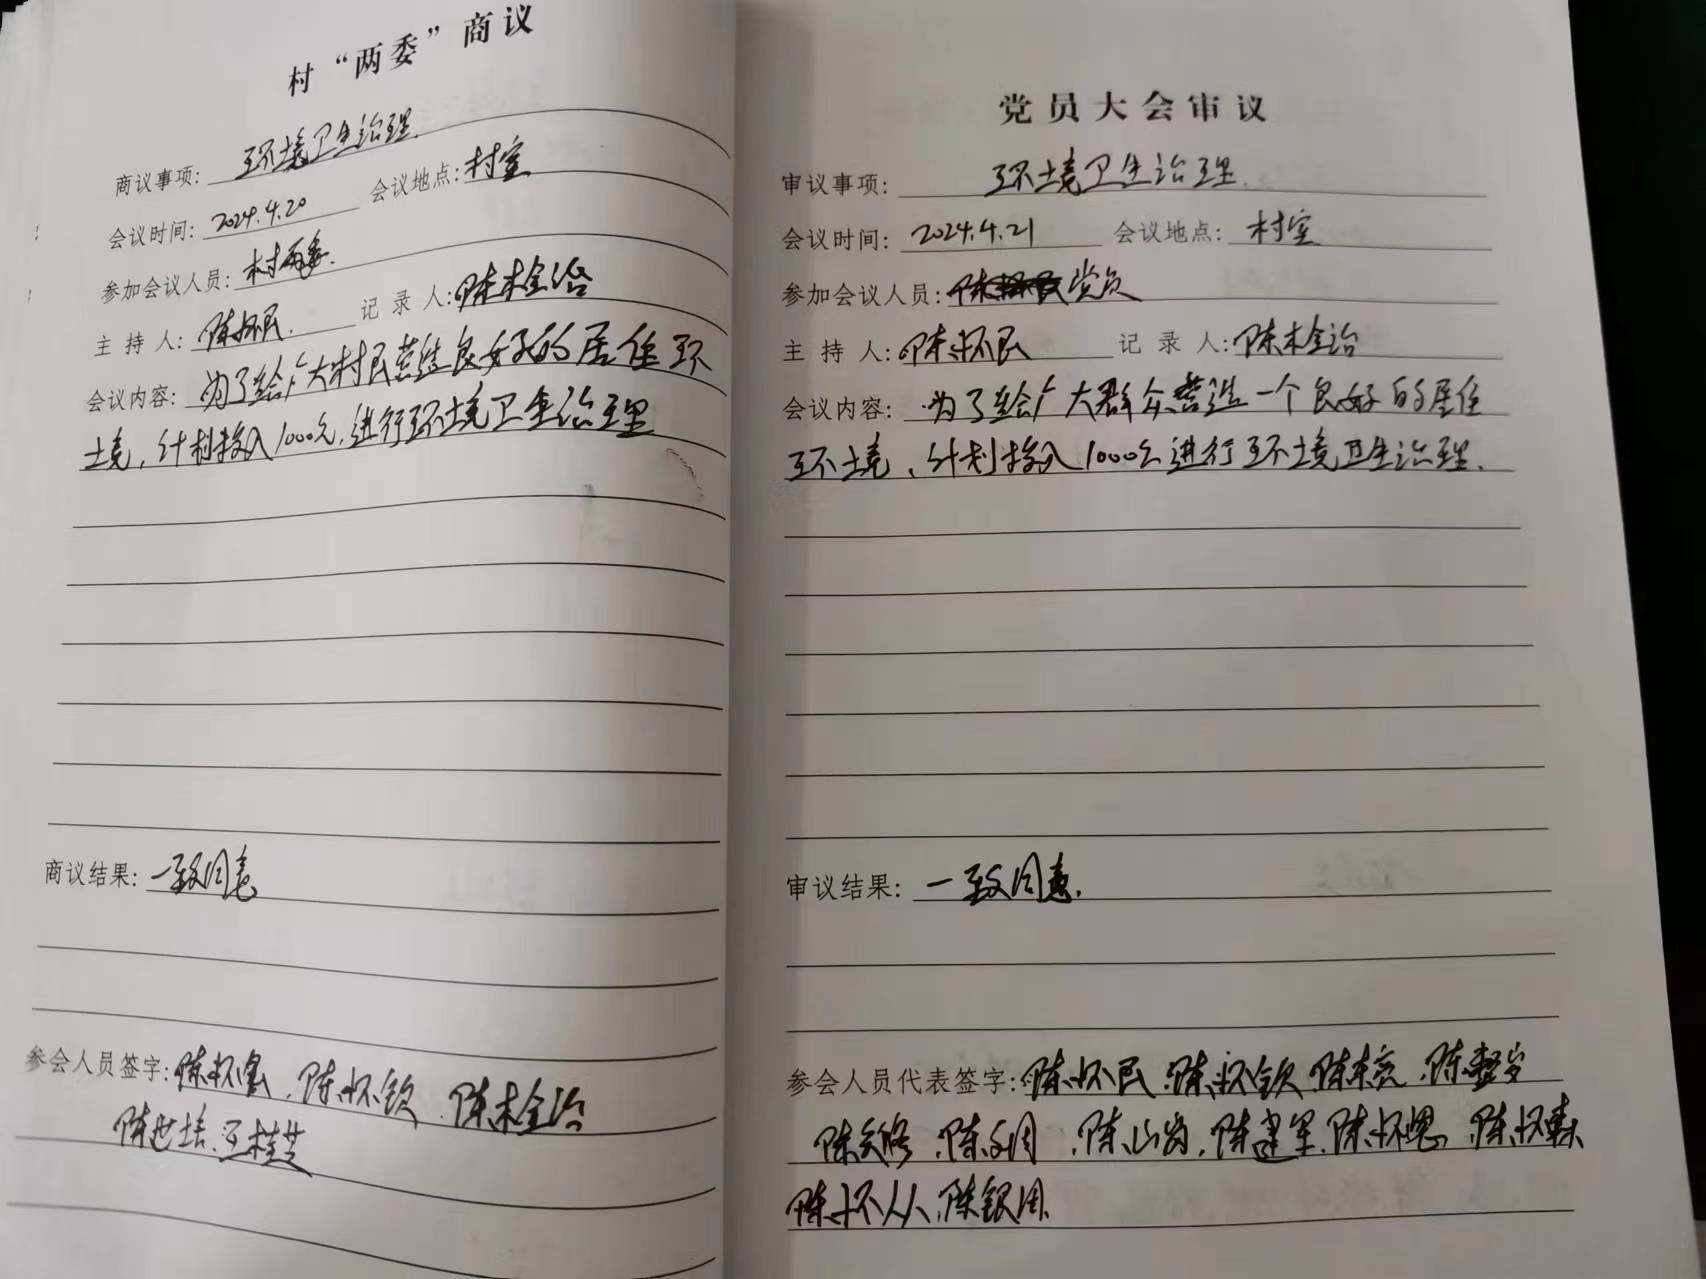 村“两委”商议
商议事项: 环境卫生治理.
会议时间: 2024.4.20 会议地点: 村室
参加会议人员: 村两委.
主 持 人: 陈怀民. 记 录 人: 陈栓治
会议内容: 为了给广大村民营造良好的居住环
境, 计划投入1000元, 进行环境卫生治理
商议结果: 一致同意
参会人员签字: 陈怀 陈怀钦. 陈栓治
陈世培. 王桂芝
党员大会审议
审议事项: 环境卫生治理.
会议时间: 2024.4.21 会议地点: 村室
参加会议人员: 党员
主 持 人: 陈怀民 记 录 人: 陈栓治
会议内容: 为了给广大群众营造一个良好的居住
环境, 计划投入1000元进行环境卫生治理.
审议结果: 一致同意.
参会人员代表签字: 陈怀民. 陈怀钦. 陈 陈
陈 陈 陈山岗. 陈建军. 陈怀恩. 陈怀
陈怀人. 陈银周.